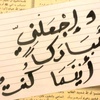 واجعلني
مباركا
أينما كنت